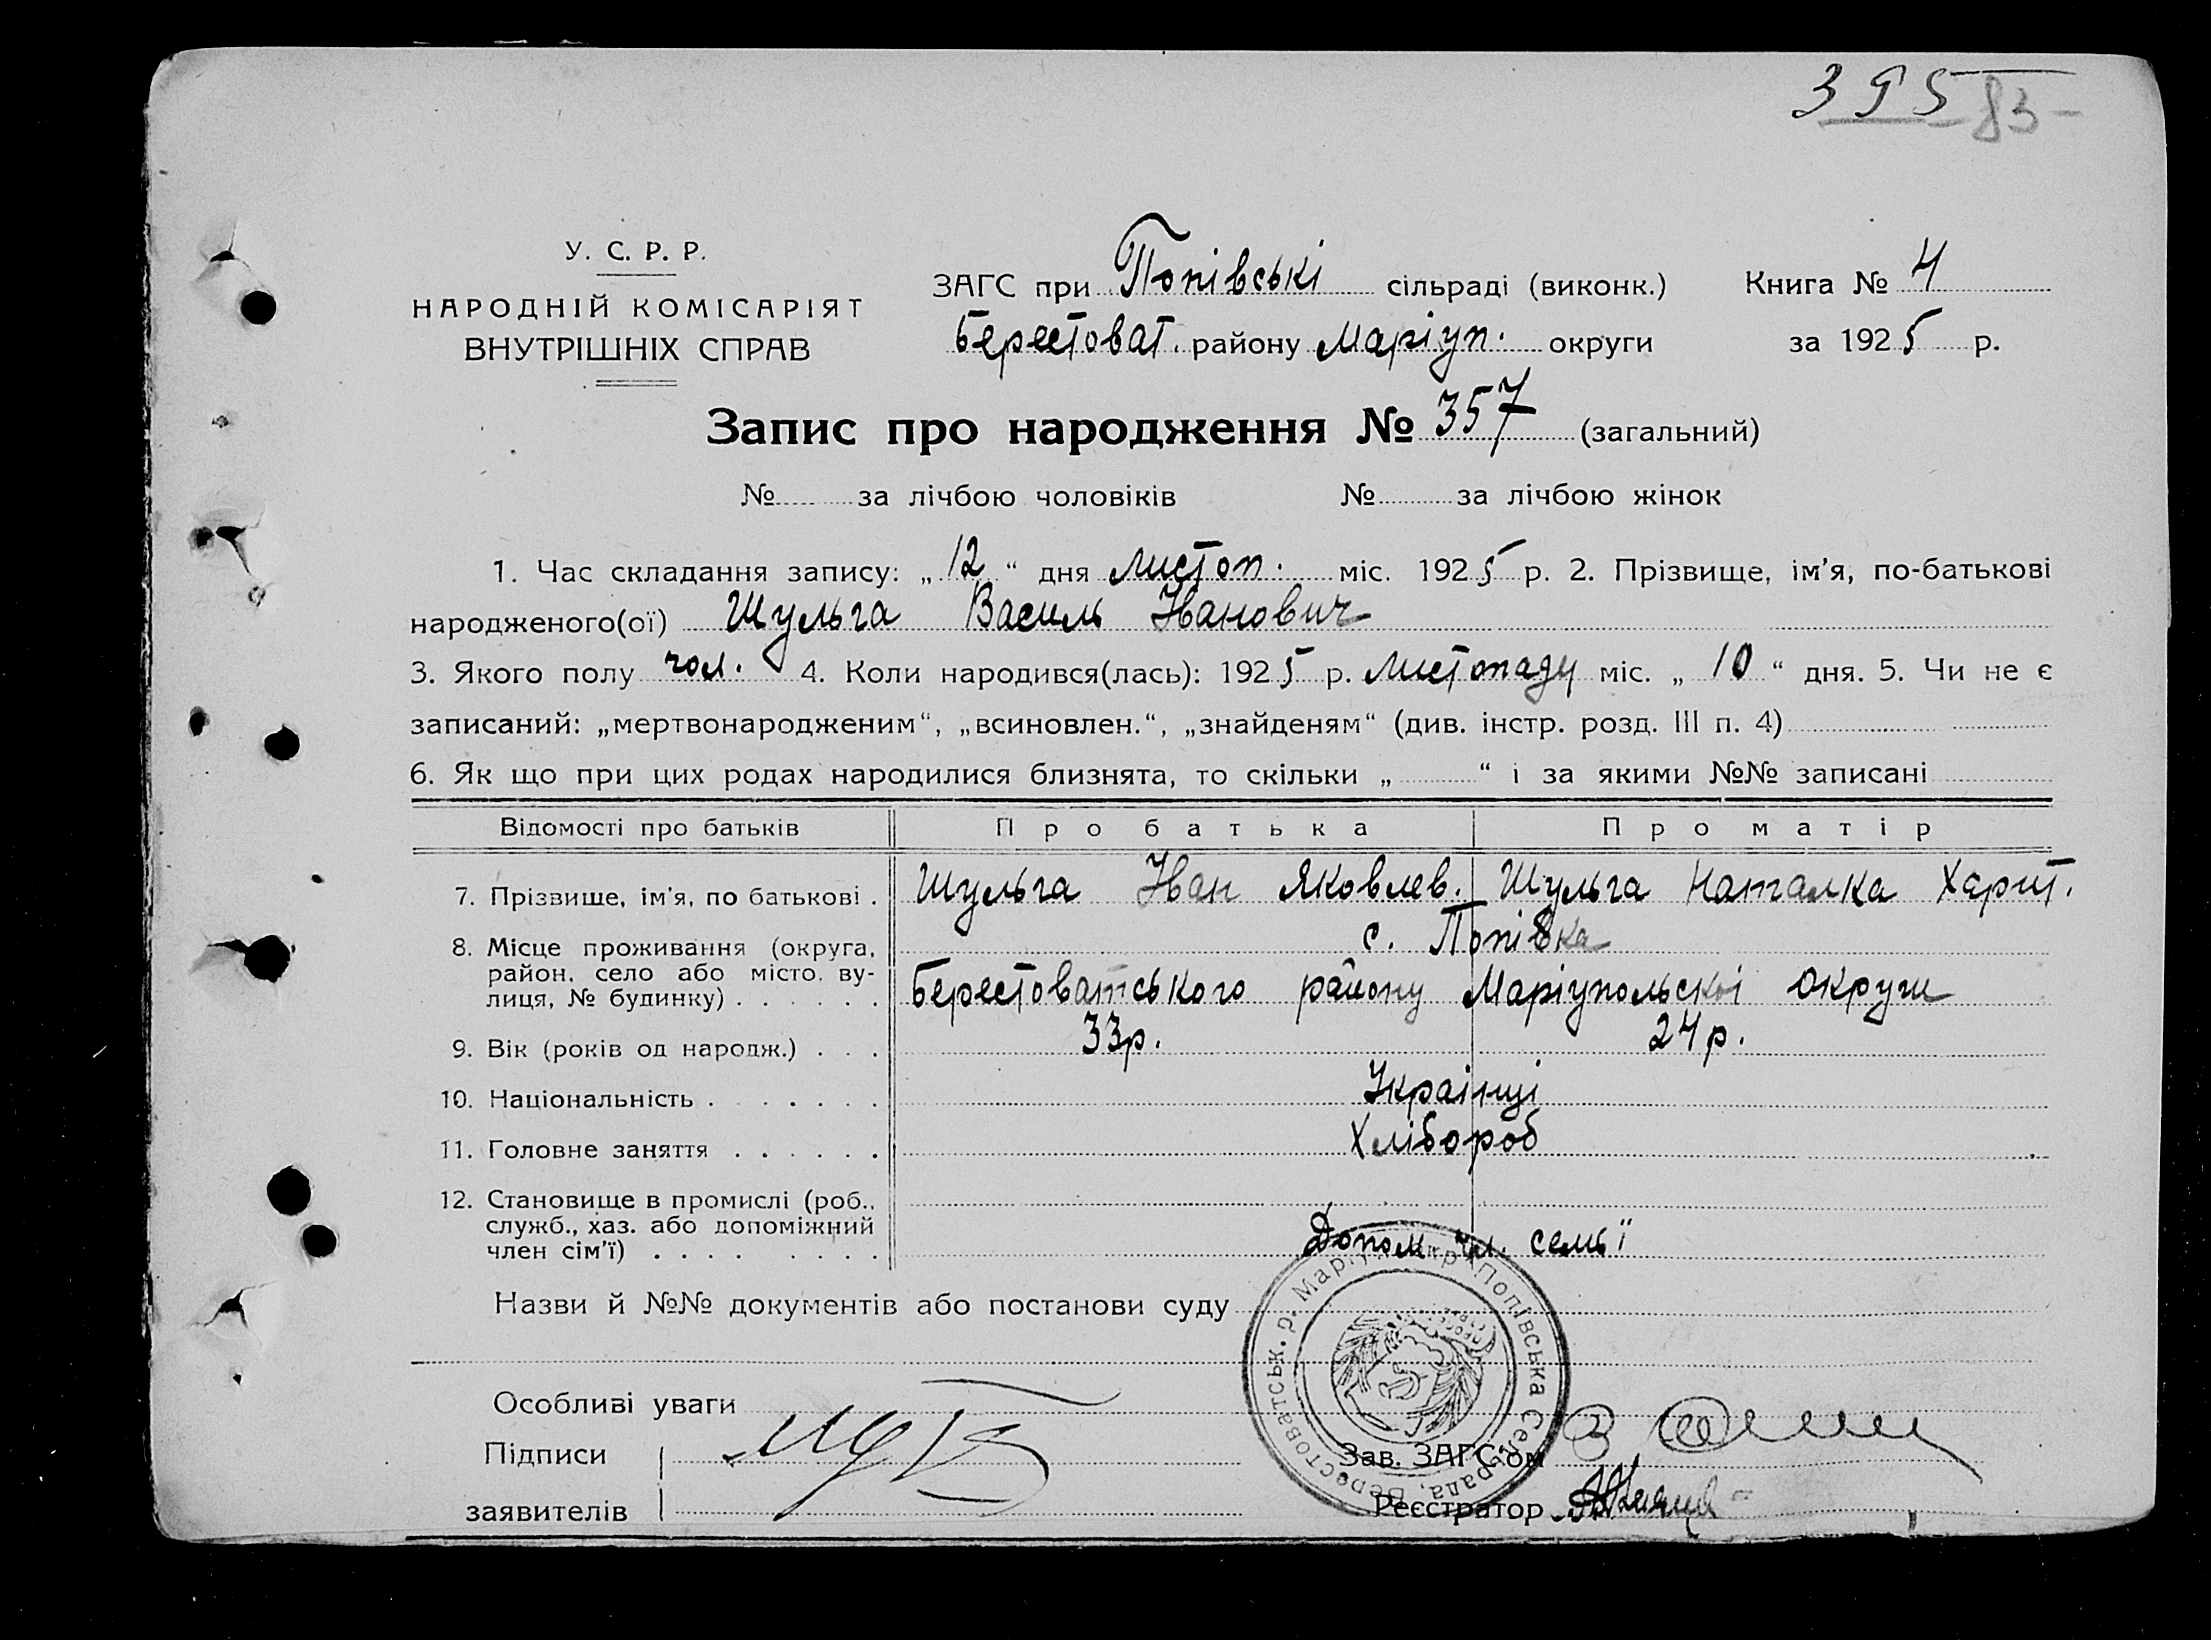 395 83
У. С. Р. Р.
НАРОДНІЙ КОМІСАРІЯТ
ВНУТРІШНІХ СПРАВ
ЗАГС при Попівські сільраді (виконк.) Книга № 4
Берестоват. району Маріуп. округи за 1925 р.
Запис про народження № 357 (загальний)
№ за лічбою чоловіків № за лічбою жінок
1. Час складання запису: „12“ дня листоп. міс. 1925 р. 2. Прізвище, ім'я, по-батькові
народженого(ої) Шульга Василь Іванович
3. Якого полу чол. 4. Коли народився(лась): 1925 р. листопаду міс. „10“ дня. 5. Чи не є
записаний: „мертвонародженим“, „всиновлен.“, „знайденям“ (див. інстр. розд. III п. 4)
6. Як що при цих родах народилися близнята, то скільки „ “ і за якими №№ записані
Відомості про батьків Про батька Про матір
7. Прізвище, ім'я, по батькові . Шульга Іван Яковлев. Шульга Наталка Харит.
8. Місце проживання (округа, с. Попівка
район, село або місто, ву-
лиця, № будинку) . . . . . . Берестоватського району Маріупольскоі округи
9. Вік (років од народж.) . . . 33р. 24р.
10. Національність . . . . . . Украінці
11. Головне заняття . . . . . . Хлібороб
12. Становище в промислі (роб.,
служб., хаз. або допоміжний
член сім'ї) . . . . . . . . . Допом. чл. семьї
Назви й №№ документів або постанови суду
Особливі уваги
Підписи
Зав. ЗАГС'ом
заявителів
Реєстратор
Попівська Сельрада, Берестоватськ. р. Маріуп. окр.